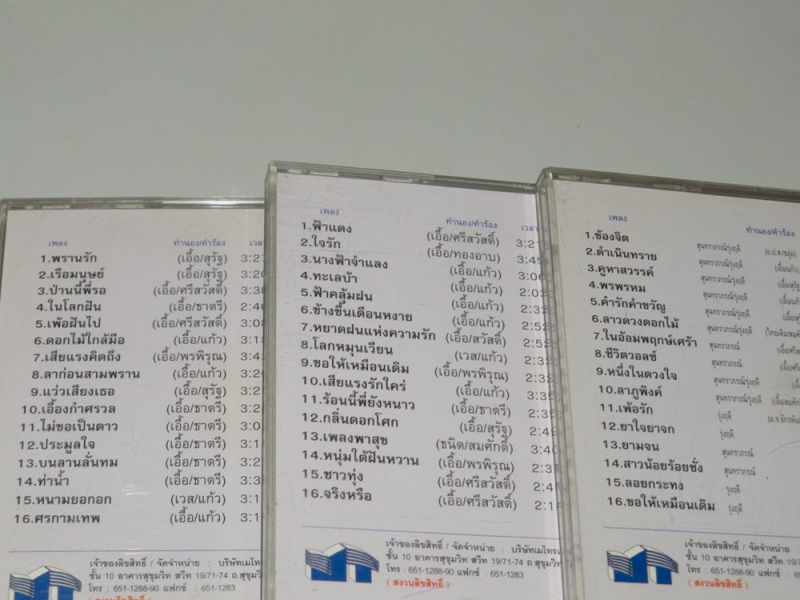 เพลง ทำนอง/คำร้อง เวลา
1.พรานรัก (เอื้อ/สุรัฐ) 3:27
2.เรือมนุษย์ (เอื้อ/สุรัฐ) 3:20
3.ป่านนี้พี่รอ (เอื้อ/ศรีสวัสดิ์) 3:38
4.ในโลกฝัน (เอื้อ/ธาตรี) 2:4
5.เพ้อฝันไป (เอื้อ/ศรีสวัสดิ์) 3:08
6.ดอกไม้ใกล้มือ (เอื้อ/แก้ว) 3:1
7.เสียแรงคิดถึง (เอื้อ/พรพิรุณ) 3:4
8.ลาก่อนสามพราน (เอื้อ/แก้ว) 3:2
9.แว่วเสียงเธอ (เอื้อ/สุรัฐ) 3:2
10.เอื้องกำศรวล (เอื้อ/ธาตรี) 3:2
11.ไม่ขอเป็นดาว (เอื้อ/ธาตรี) 3:0
12.ประมูลใจ (เอื้อ/ธาตรี) 3:1
13.บนลานลั่นทม (เอื้อ/ธาตรี) 2:
14.ท่าน้ำ (เอื้อ/ธาตรี) 3:3
15.หนามยอกอก (เวส/แก้ว) 3:1
16.ศรกามเทพ (เอื้อ/แก้ว) 3:1
เจ้าของลิขสิทธิ์ / จัดจำหน่าย : บริษัทเมโทร
ชั้น 10 อาคารสุขุมวิท สวีท 19/71-74 ถ.สุขุมวิ
โทร : 651-1288-90 แฟกซ์ : 651-1283
( สงวนลิขสิทธิ์ )
เพลง ทำนอง/คำร้อง เวลา
1.ฟ้าแดง (เอื้อ/ศรีสวัสดิ์) 3:2
2.ใจรัก (เอื้อ/ทองอาบ) 3:4
3.นางฟ้าจำแลง (เอื้อ/แก้ว) 3:0
4.ทะเลบ้า (เอื้อ/แก้ว) 2:0
5.ฟ้าคลุ้มฝน (เอื้อ/แก้ว) 2:3
6.ข้างขึ้นเดือนหงาย (เอื้อ/แก้ว) 2:5
7.หยาดฝนแห่งความรัก (เอื้อ/สวัสดิ์) 2:5
8.โลกหมุนเวียน (เวส/แก้ว) 2:3
9.ขอให้เหมือนเดิม (เอื้อ/พรพิรุณ) 2:3
10.เสียแรงรักใคร่ (เอื้อ/แก้ว) 3:3
11.ร้อนนี้พี่ยังหนาว (เอื้อ/ธาตรี) 2:3
12.กลิ่นดอกโศก (เอื้อ/สุรัฐ) 2:4
13.เพลงพาสุข (ธนิต/สมศักดิ์) 3:4
14.หนุ่มใต้ฝันหวาน (เอื้อ/พรพิรุณ) 2:3
15.ชาวทุ่ง (เอื้อ/ศรีสวัสดิ์) 2:4
16.จริงหรือ (เอื้อ/ศรีสวัสดิ์) 2:1
เจ้าของลิขสิทธิ์ / จัดจำหน่าย : บริษัทเมโทร
ชั้น 10 อาคารสุขุมวิท สวีท 19/71-74 ถ.สุขุม
โทร : 651-1288-90 แฟกซ์ : 651-1283
( สงวนลิขสิทธิ์ )
เพลง ทำนอง/คำร้อง
1.ข้องจิต สุนทราภรณ์/รุ่งฤดี
2.ดำเนินทราย สุนทราภรณ์/รุ่งฤดี
3.คูหาสวรรค์ สุนทราภรณ์/รุ่งฤดี
4.พรพรหม สุนทราภรณ์/รุ่งฤดี
5.คำรักคำขวัญ สุนทราภรณ์/รุ่งฤดี
6.ลาวดวงดอกไม้ สุนทราภรณ์/รุ่งฤดี
7.ในอ้อมพฤกษ์เศร้า สุนทราภรณ์
8.ชีวิตวอลซ์ สุนทราภรณ์
9.หนึ่งในดวงใจ สุนทราภรณ์/รุ่งฤดี
10.ลาภูพิงค์ สุนทราภรณ์/รุ่งฤดี
11.เพ้อรัก รุ่งฤดี
12.ยาใจยาจก รุ่งฤดี
13.ยามจน สุนทราภรณ์
14.สาวน้อยร้อยชั่ง สุนทราภรณ์
15.ลอยกระทง รุ่งฤดี
16.ขอให้เหมือนเดิม รุ่งฤดี
เจ้าของลิขสิทธิ์ / จัดจำหน่าย :
ชั้น 10 อาคารสุขุมวิท สวีท 19/71
โทร : 651-1288-90 แฟกซ์
( สงวนลิขสิทธิ์ )